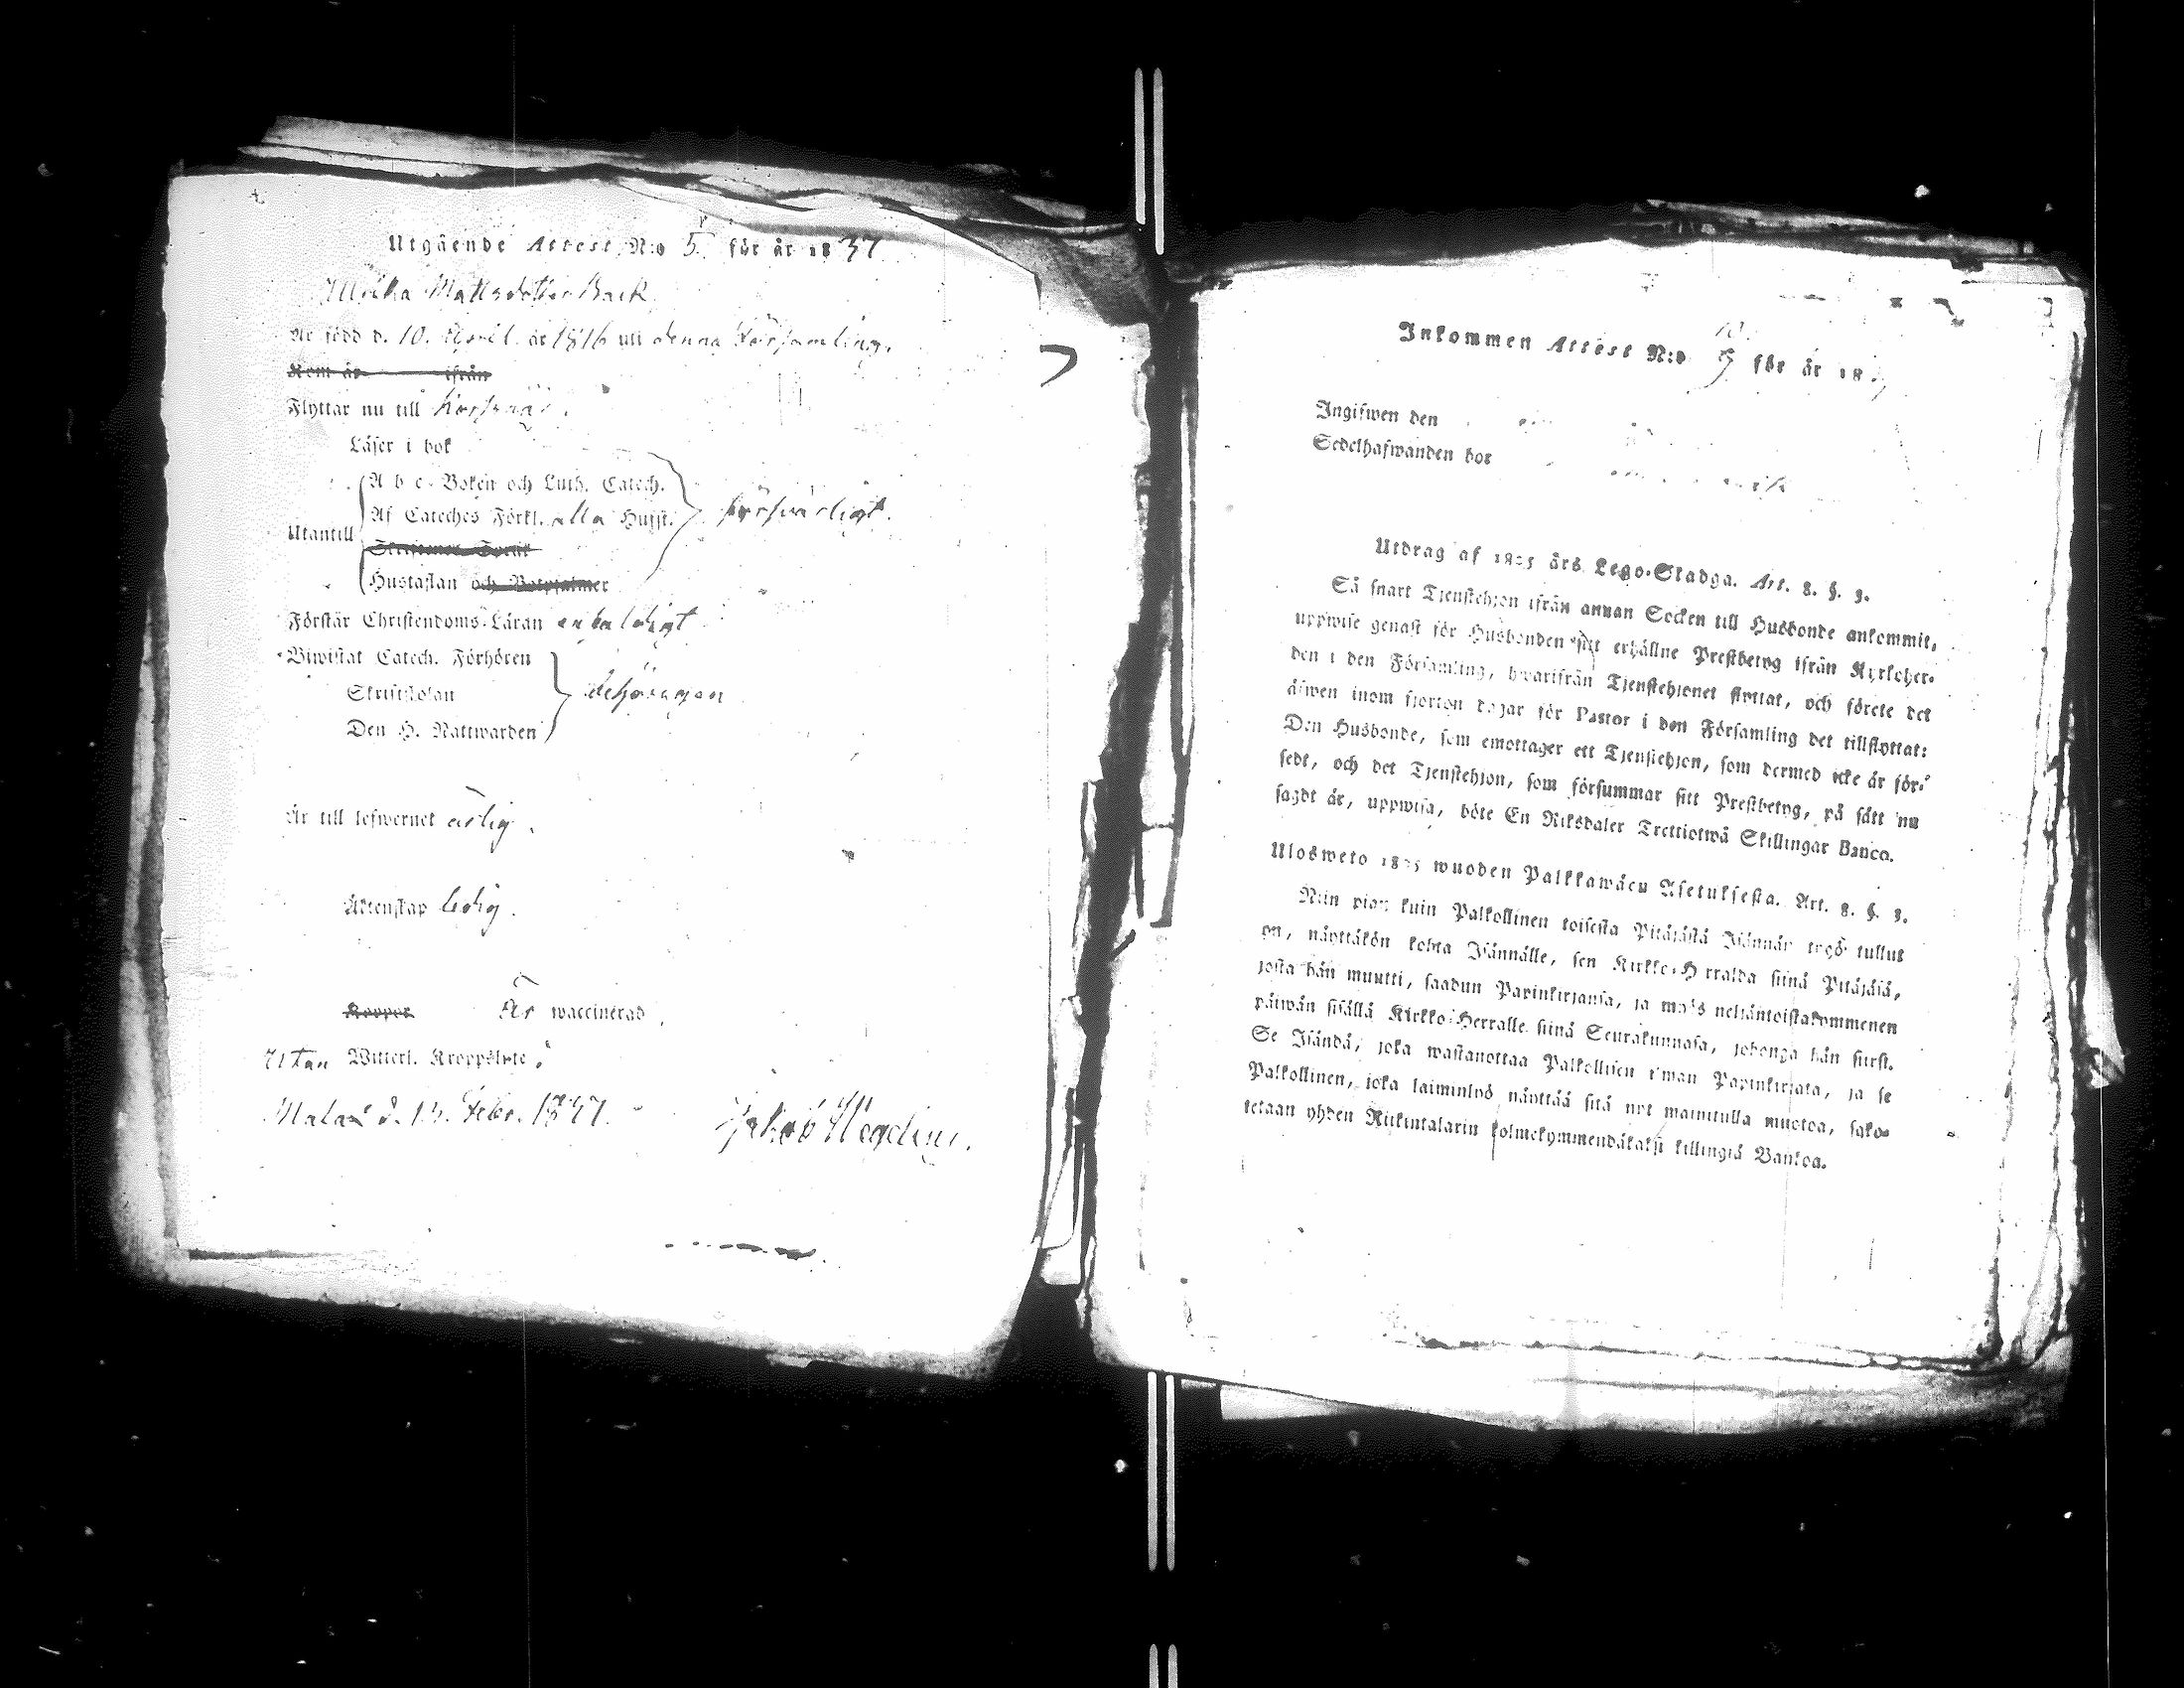 Utgående Attest N:o 5. för år 1837
Ulrika Mattsdotter Back
Är född d. 10. April. år 1816 uti denna Församling.
Kom år ifrån
Flyttar nu till Korsnäs.
Läser i bok
A b c-Boken och Luth. Catech.
Af Cateches Förkl. alla Hufst. försvarligt.
Utantill
Skriftenes Språk
Hustaflan och Botpsalmer
Förstår Christendoms-Läran enfaldigt
Biwistat Catech. Förhören
Skriftskolan behörigen
Den H. Nattwarden
Är till lefwernet ärlig.
Äktenskap ledig.
Koppor Är waccinerad.
Utan Witterl. Kroppslyte.
Malax d. 13. Febr. 1837.
Jakob Wegelius.
Inkommen Attest N:o för år 18
Ingifwen den
Sedelhafwanden bor
Utdrag af 1805 års Lego-Stadga. Art. 8. §. 3.
Så snart Tjenstehjon ifrån annan Socken till Husbonde ankommit,
uppwise genast för Husbonden sitt erhållne Prestbetyg ifrån Kyrkoher-
den i den Församling, hwarifrån Tjenstehjonet flyttat, och förete det
äfwen inom fjorton dagar för Pastor i den Församling det tillflyttat:
Den Husbonde, som emottager ett Tjenstehjon, som dermed icke är för-
sedt, och det Tjenstehjon, som försummar sitt Prestbetyg, på sätt nu
sagdt är, uppwisa, böte En Riksdaler Trettiotwå Skillingar Banco.
Ulosweto 1805 wuoden Palkkawäen Asetuksesta. Art. 8. §. 3.
Niin pian kuin Palkollinen toisesta Pitäjästä Isännän tygö tullut
on, näyttäkön kohta Isännälle, sen Kirkko-Herralda siinä Pitäjäsä,
josta hän muutti, saadun Papinkirjansa, ja myös neljäntoistakymmenen
päiwän sisällä Kirkko-Herralle siinä Seurakunnasa, johonga hän siirsi.
Se Isändä, joka wastanottaa Palkollisen ilman Papinkirjata, ja se
Palkollinen, joka laiminlyö näyttää sitä nyt mainitulla muotoa, sako-
tetaan yhden Riikintalarin kolmekymmendäkaksi killingiä Bankoa.